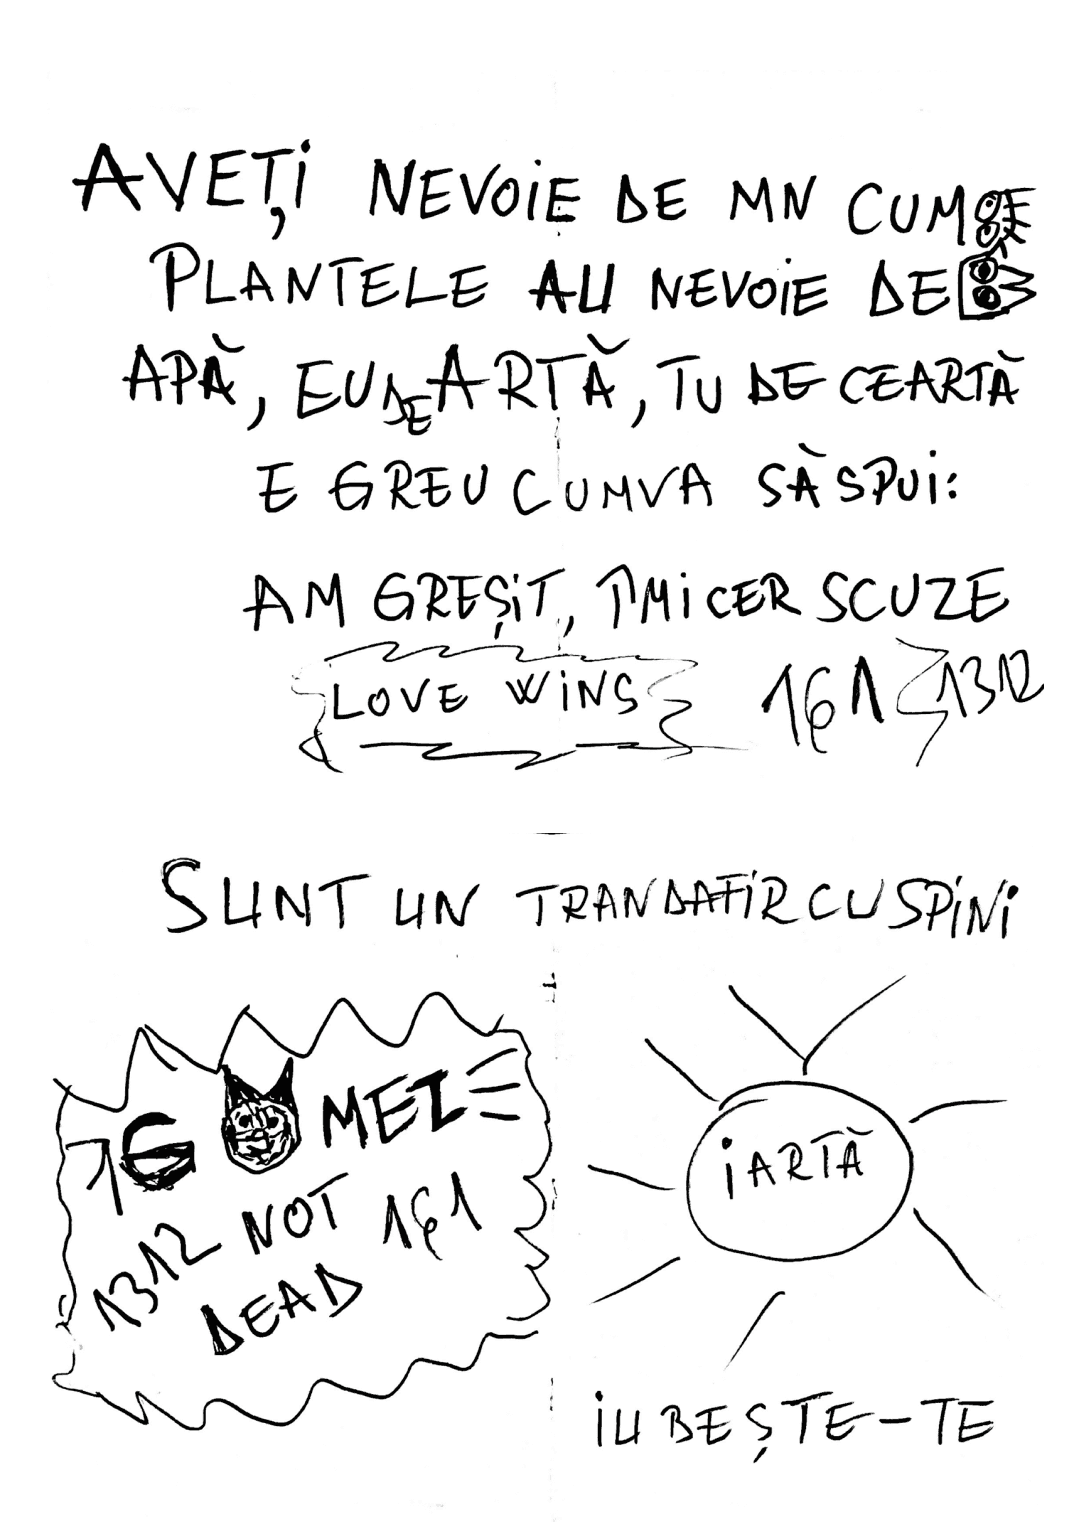 AVEȚI NEVOIE DE MN CUM
PLANTELE AU NEVOIE DE
APĂ, EU DE ARTĂ, TU DE CEARTĂ
E GREU CUMVA SĂ SPUI:
AM GREȘIT, ÎMI CER SCUZE
LOVE WINS 161 1312
SUNT UN TRANDAFIR CU SPINI
GOMEZ
1312 NOT 161
DEAD
IARTĂ
IUBEȘTE-TE